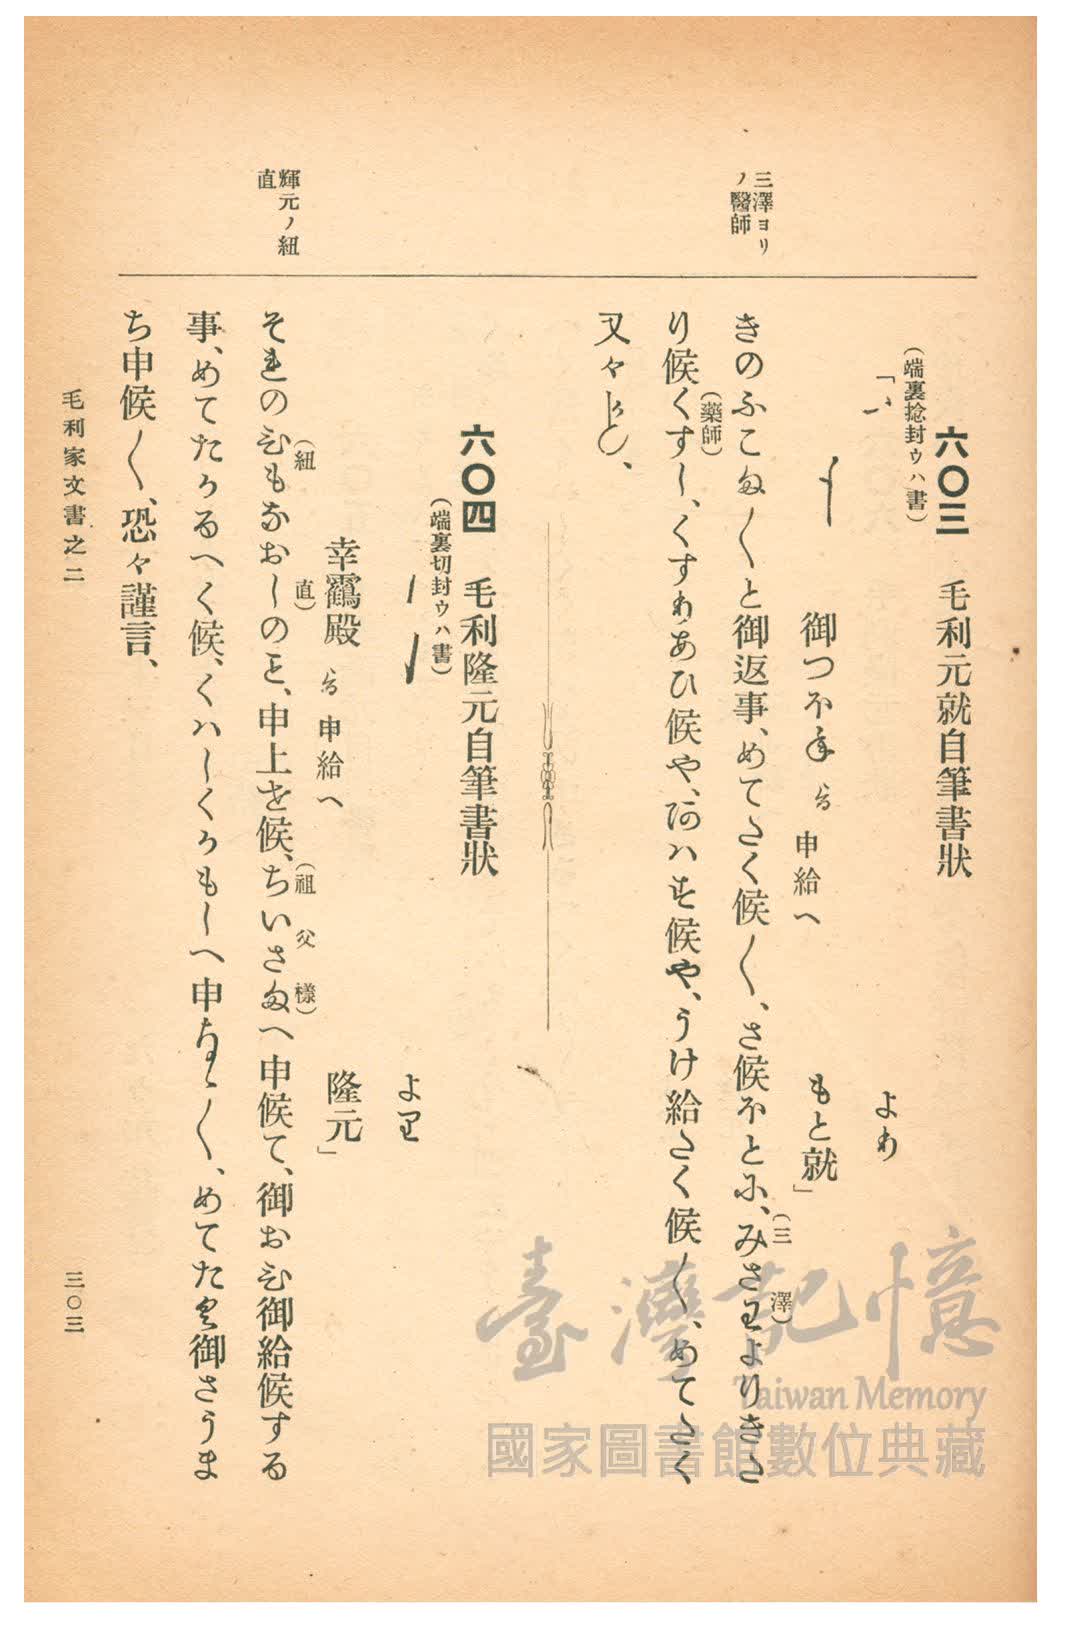 三澤ヨリ
ノ醫師
輝元ノ紐
直
六〇三　毛利元就自筆書狀
(端裏捻封ウハ書)
「
よわ
御つほね　ゟ　申給へ　もと就」
きのふこま〱と御返事、めてたく候〱、さ候ほとに、みさわよりきた
(三澤)
り候くすし、くすりあひ候や、阿ハせ候や、うけ給たく候〱、めてたく
(藥師)
又々かしく、
六〇四　毛利隆元自筆書狀
(端裏切封ウハ書)
より
幸鶴殿　ゟ　申給へ　隆元」
それのひもなおしの事、申上せ候、ちいさまへ申候て、御おひ御給候する
(紐直)
(祖父樣)
事、めてたかるへく候、くハしくかもしへ申まいらせ候〱、めてたく御さうま
ち申候〱、恐々謹言、
毛利家文書之二
三〇三
臺灣記憶
Taiwan Memory
國家圖書館數位典藏